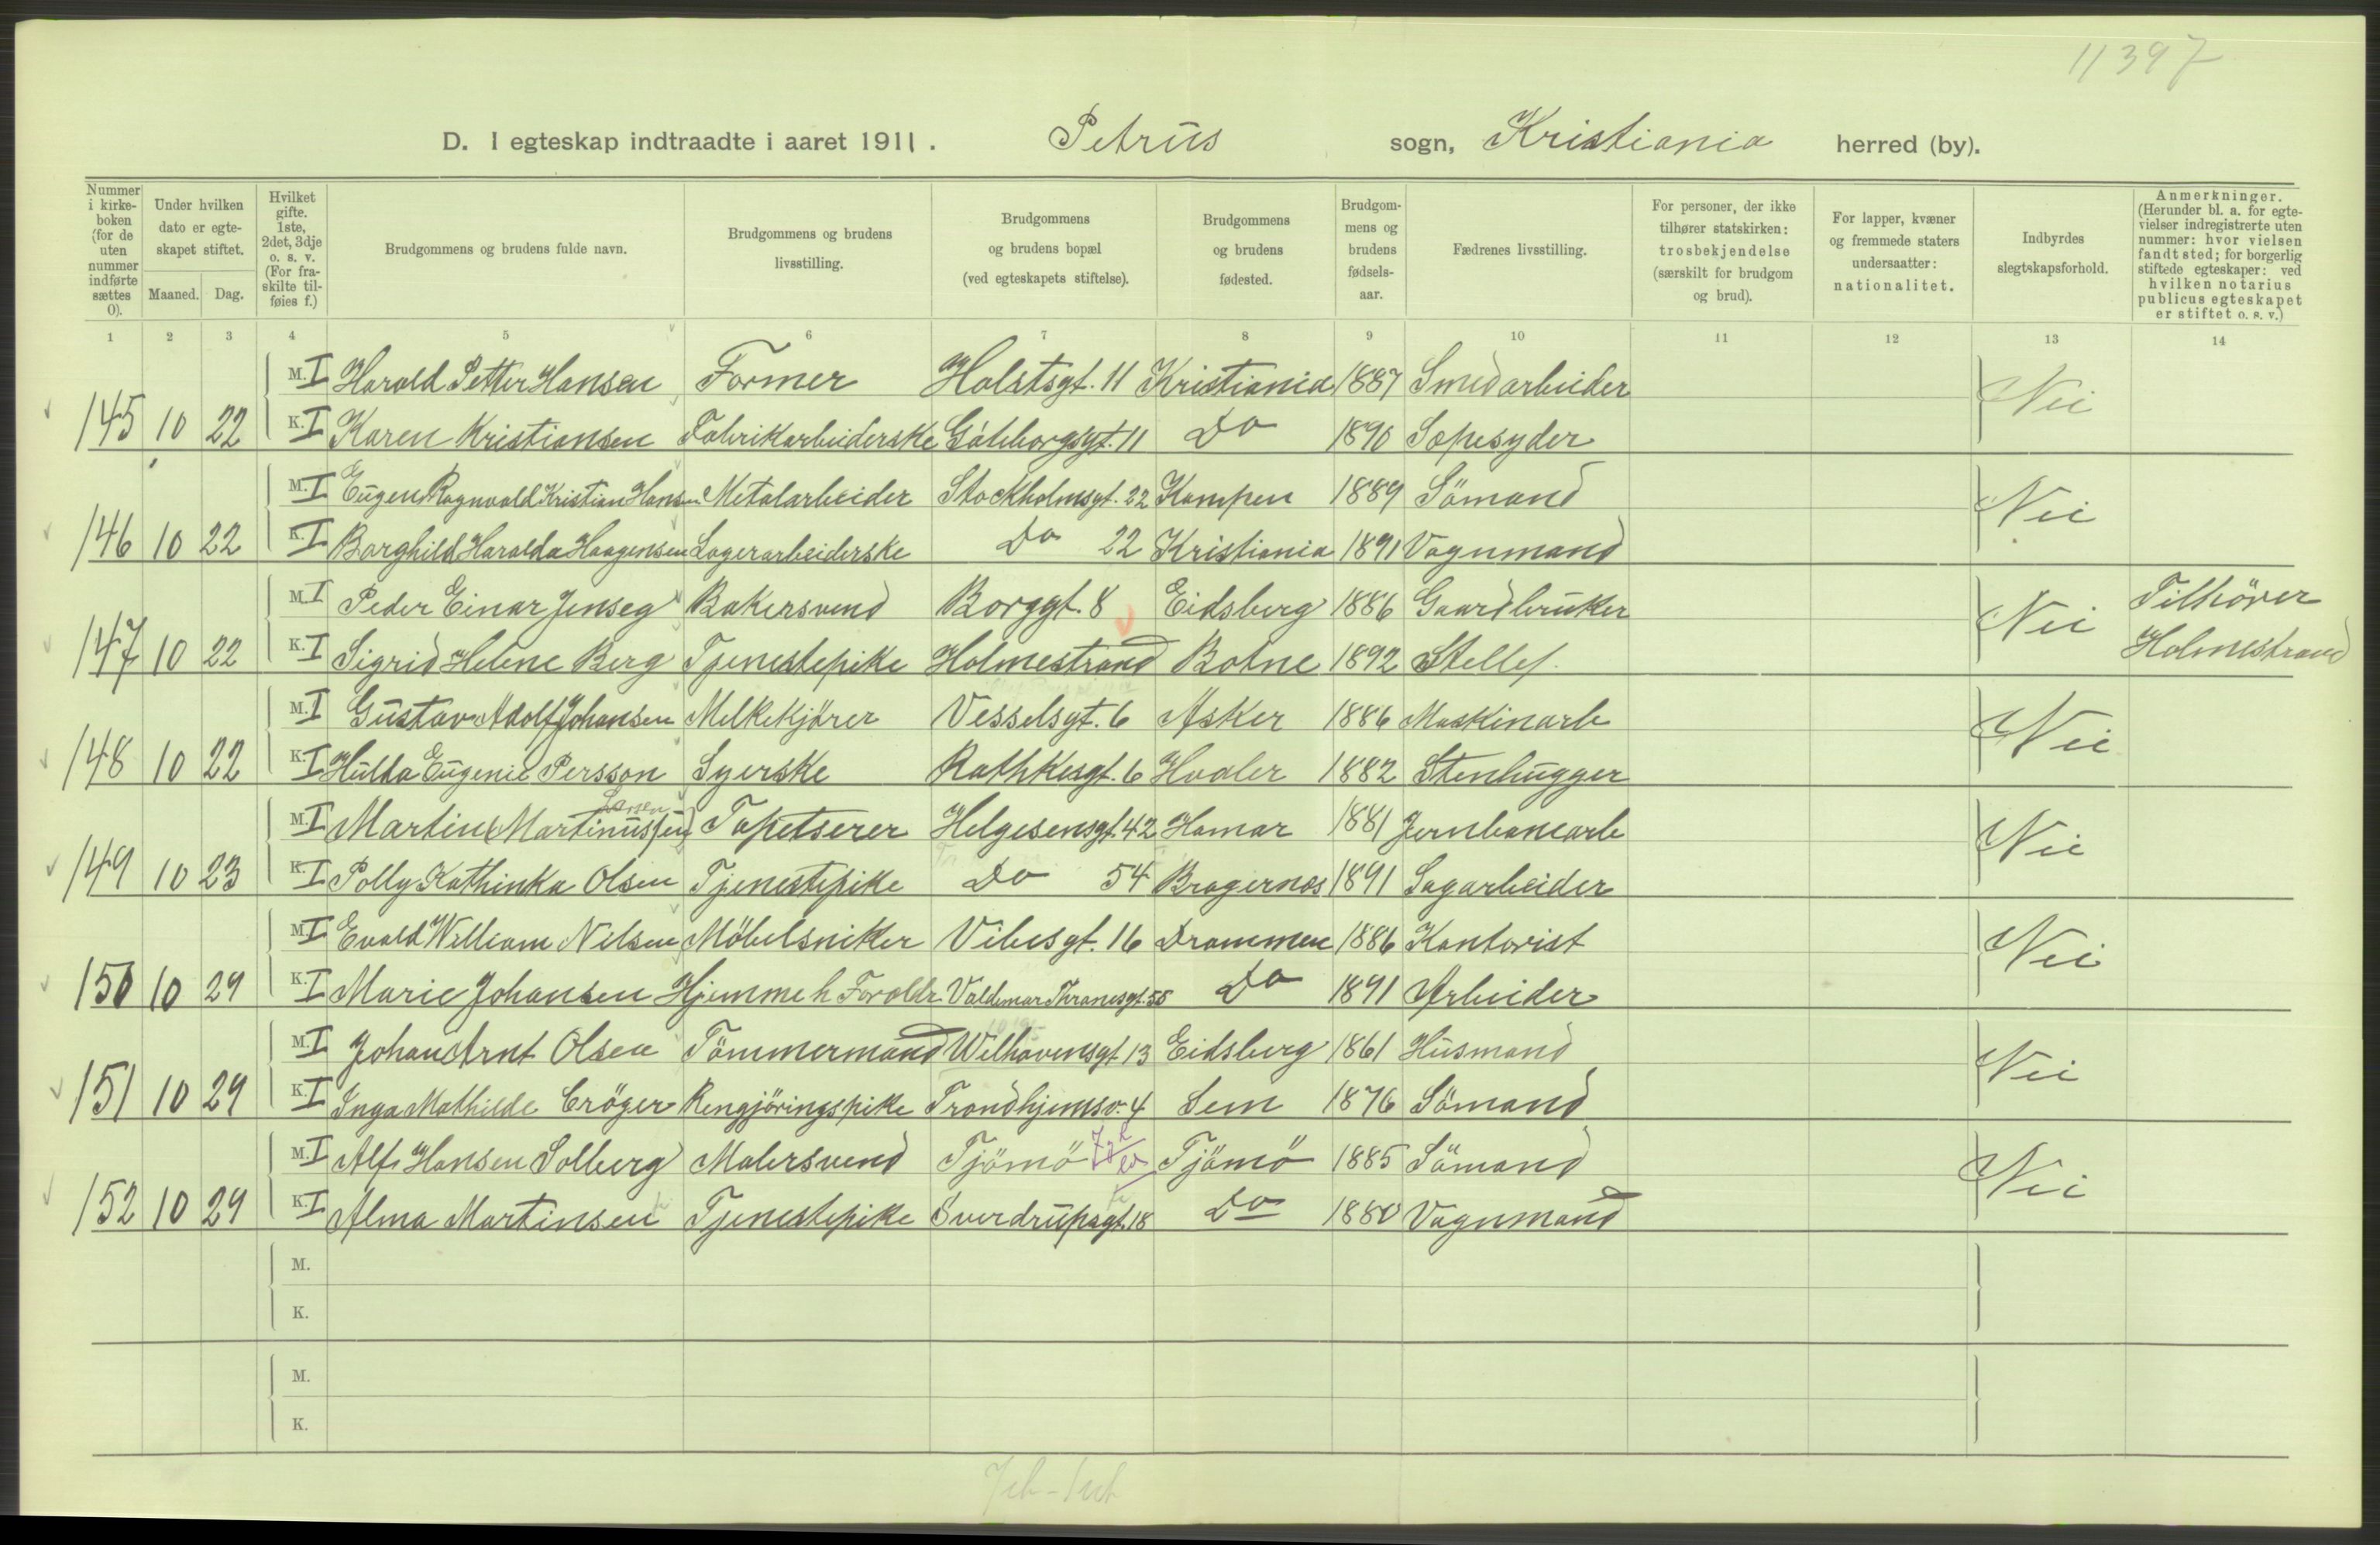 11397
D. I egteskap indtraadte i aaret 1911. Petrus sogn, Kristiania herred (by).
Nummer i kirke-boken (for de uten nummer indførte sættes 0).
Under hvilken dato er egte-skapet stiftet. Maaned. Dag.
Hvilket gifte. 1ste, 2det, 3dje o. s. v. (For fra-skilte til-føies f.)
Brudgommens og brudens fulde navn.
Brudgommens og brudens livsstilling.
Brudgommens og brudens bopæl (ved egteskapets stiftelse).
Brudgommens og brudens fødested.
Brudgom-mens og brudens fødsels-aar.
Fædrenes livsstilling.
For personer, der ikke tilhører statskirken: trosbekjendelse (særskilt for brudgom og brud).
For lapper, kvæner og fremmede staters undersaatter: nationalitet.
Indbyrdes slegtskapsforhold.
Anmerkninger. (Herunder bl. a. for egte-vielser indregistrerte uten nummer: hvor vielsen fandt sted; for borgerlig stiftede egteskaper: ved hvilken notarius publicus egteskapet er stiftet o. s. v.)
1 2 3 4 5 6 7 8 9 10 11 12 13 14
M. I Harald Petter Hansen Former Holstsgt. 11 Kristiania 1887 Smedarbeider Nei
145 10 22 K. I Karen Kristiansen Fabrikarbeiderske Göteborgsgt. 11 Do 1890 Sæpesyder
M. I Eugen Ragnvald Kristian Hansen Metalarbeider Stockholmsgt. 22 Kampen 1889 Sömand Nei
146 10 22 K. I Borghild Haralda Haagensen Lagerarbeiderske Do 22 Kristiania 1891 Vognmand
M. I Peder Einar Jenseg Bakersvend Borggt. 8 Eidsberg 1886 Gaardbruker Nei Tilhörer
147 10 22 K. I Sigrid Helene Berg Tjenestepike Holmestrand Botne 1892 Skellef. Holmestrand
M. I Gustav Adolf Johansen Melkekjörer Vesselsgt. 6 Asker 1886 Maskinarb Nei
148 10 22 K. I Hulda Eugenie Persson Syerske Rathkesgt. 6 Hvaler 1882 Stenhugger
Larsen
M. I Martin (Martinussen) Tapetserer Helgesensgt. 42 Hamar 1881 Jernbanearb Nei
149 10 23 K. I Polly Kathinka Olsen Tjenestepike Do 54 Bragernes 1891 Sagarbeider
M. I Evald William Nilsen Möbelsniker Vibesgt. 16 Drammen 1886 Kontorist Nei
150 10 29 K. I Marie Johansen Hjemme h Foraldr Valdemar Thranesgt. 55 Do 1891 Arbeider
M. I Johan Arnt Olsen Tömmermand Welhavensgt 13 Eidsberg 1861 Husmand Nei
151 10 29 K. I Inga Mathilde Cröger Rengjöringspike Trondhjemsv. 4 Sem 1876 Sömand
M. I Alf Hansen Solberg Malersvend Tjömö Tjömö 1885 Sömand Nei
152 10 29 K. I Alma Martinsen Tjenestepike Sverdrupsgt. 18 Do 1880 Vognmand
M.
K.
M.
K.